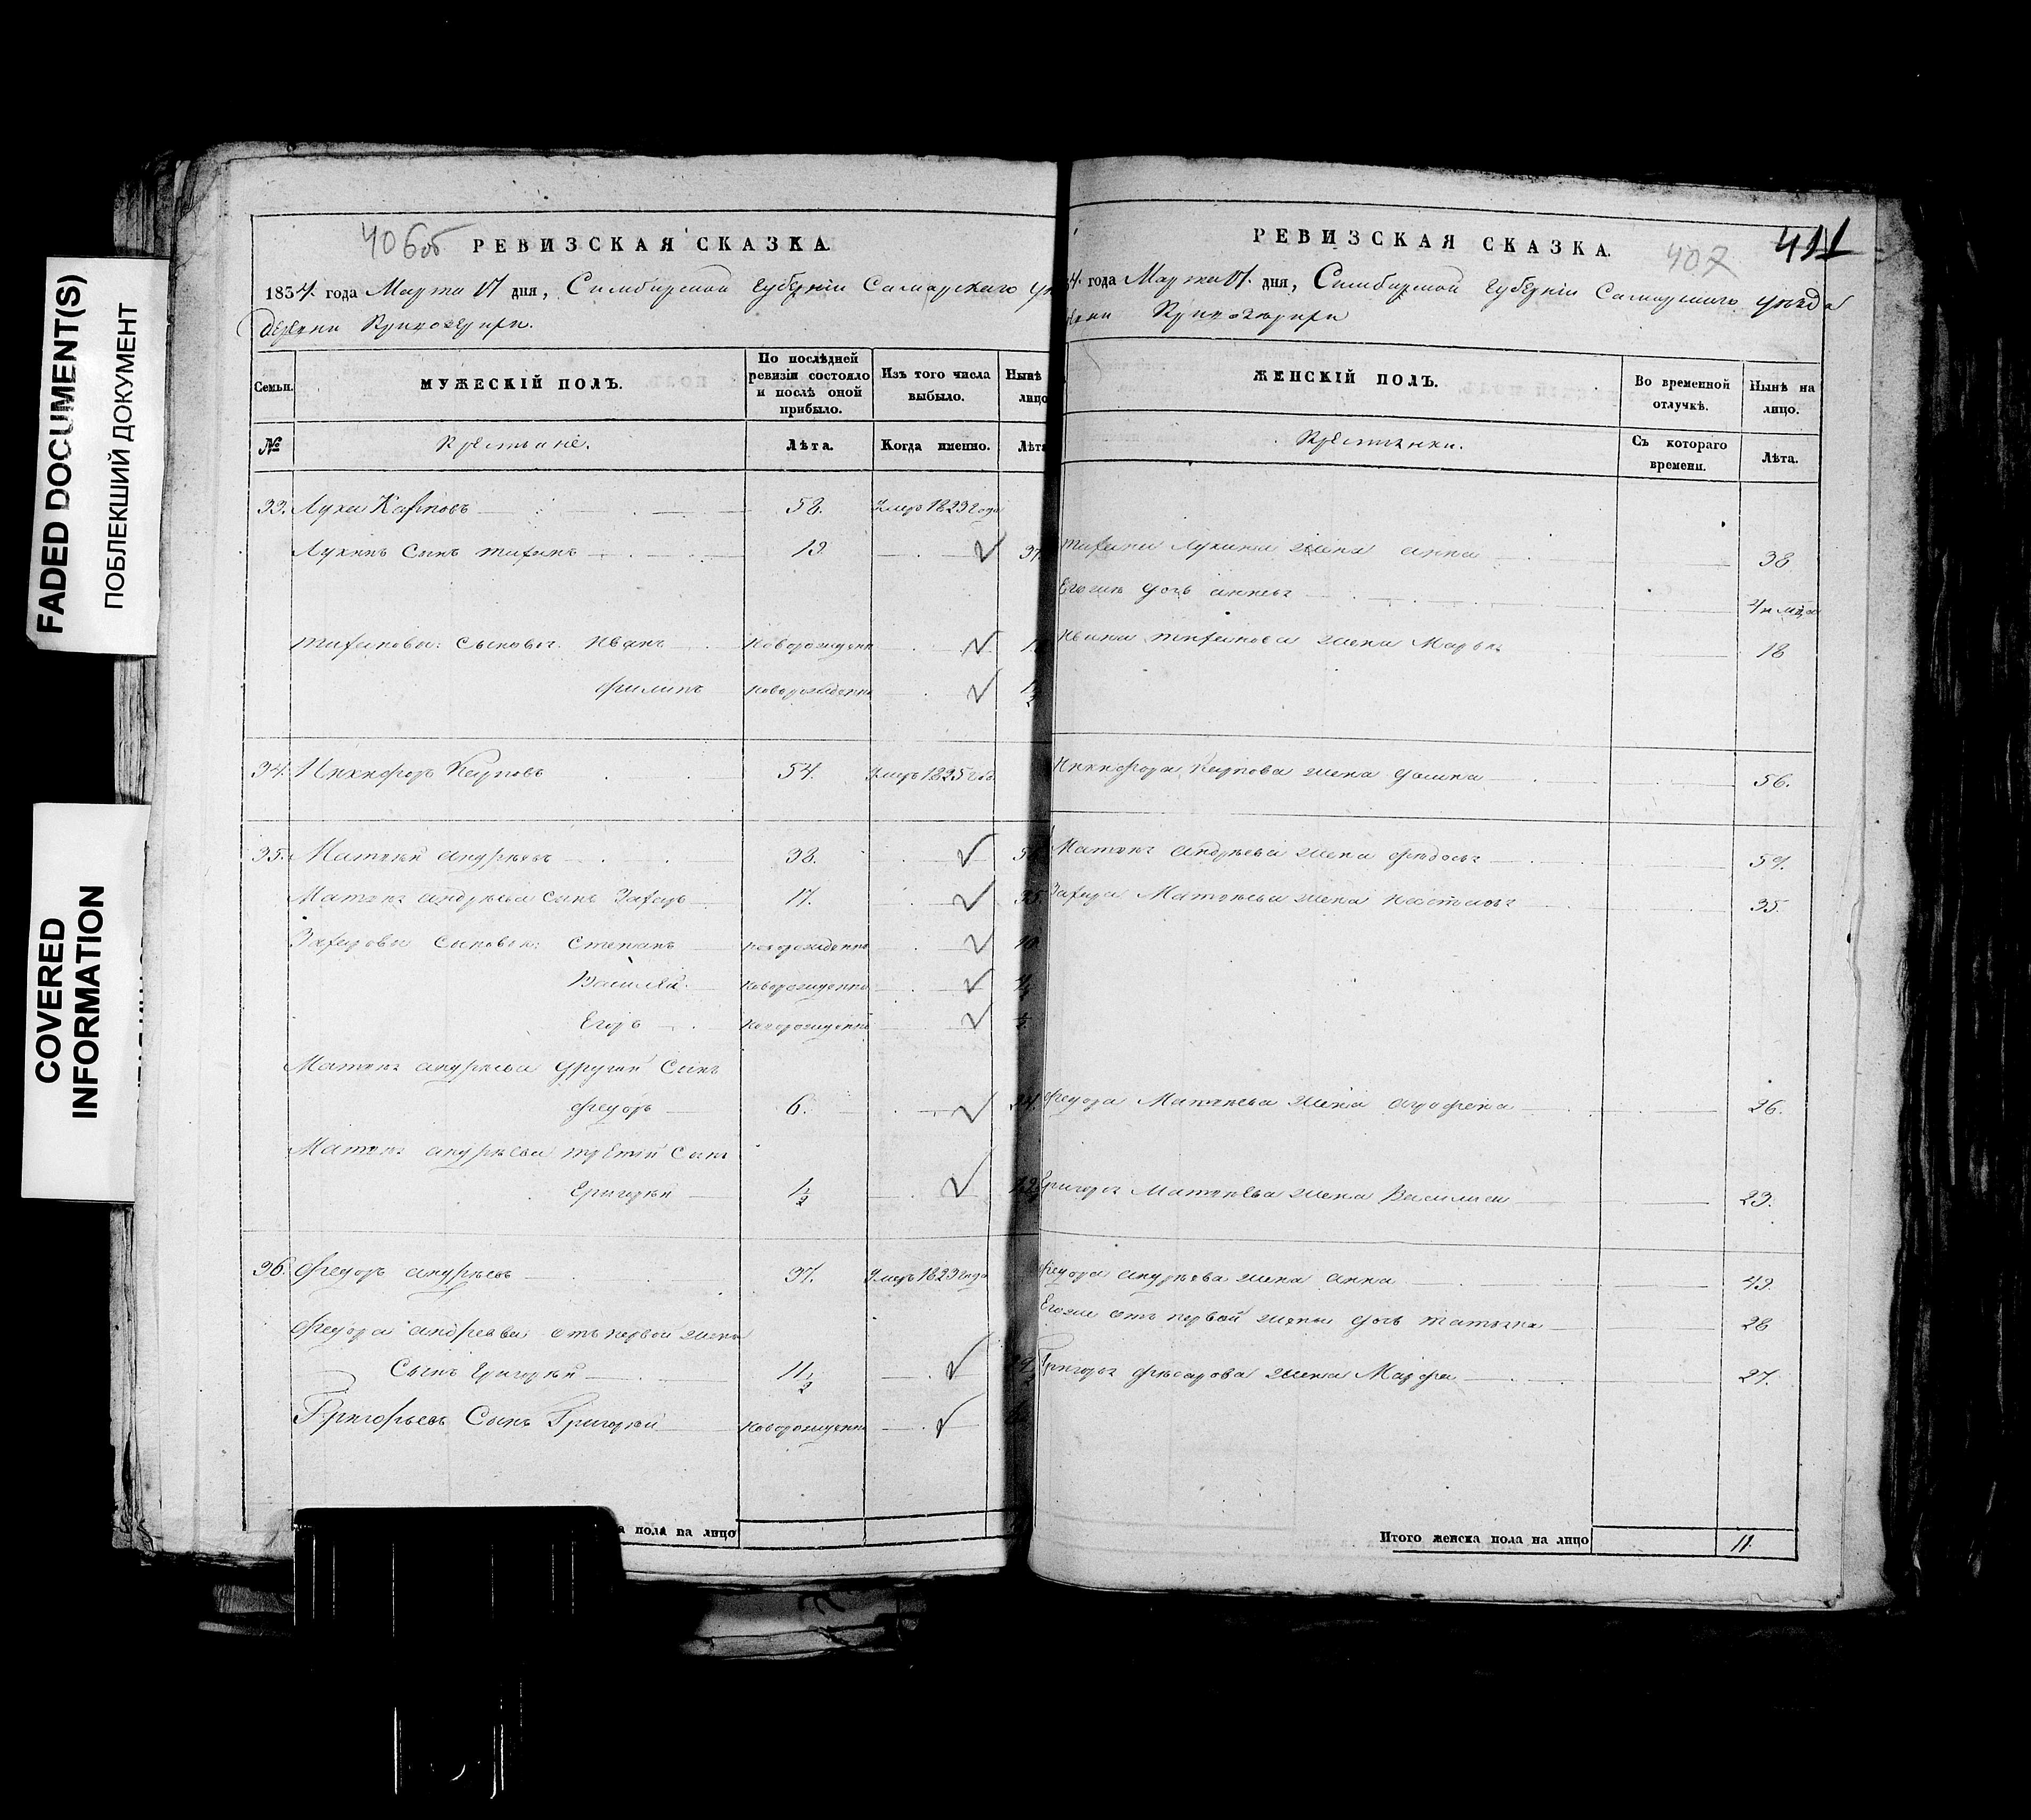 FADED DOCUMENT(S)
ПОБЛЕКШИЙ ДОКУМЕНТ
COVERED
INFORMATION
406об
РЕВИЗСКАЯ СКАЗКА
1834. года Марта 17 дня, Симбирской губернiи Самарскаго
деревни
Семьи.
МУЖЕСКІЙ ПОЛЪ.
По послѣдней ревизіи состояло и послѣ оной прибыло.
Изъ того числа выбыло.
Нынѣ лицо
№
Крестьяне.
Лѣта.
Когда именно.
Лѣта
33. Лука Карповъ 58. Умеръ 1823 года
Лукинъ Сынъ 19. 37
сыновья Иванъ Новорожденны
Филипъ новорожденны 1/2
34. Никифоръ Карповъ 54. Умеръ 1825 год
35. Матвѣй андрѣевъ 38. 56
Матвѣя андрѣева сынъ Захаръ 17. 35
Захаровы сыновья: Степанъ новорожденны 10
Василій новорожденны
Егоръ новорожденны 1/2
Матвѣя андрѣева другой Сынъ
Федоръ 6. 24
Матвѣя андрѣева третій Сынъ
Григорій 1 1/2
36. Федоръ андрѣевъ 37. Умеръ 1823 года
Федора андреева отъ первой жены
Сынъ Григорій 11 1/2
Григорьевъ Сынъ Григорій новорожденны
а пола на лицо
407
411
РЕВИЗСКАЯ СКАЗКА.
4. года Марта 17. дня, Симбирской губернiи Самарскаго уѣзда
ЖЕНСКІЙ ПОЛЪ.
Во временной отлучкѣ.
Нынѣ на лицо.
Крестьянки.
Съ котораго времени.
Лѣта.
Лукина жена анна 38
дочь
Ивана жена Марья 18
Никифора Карпова жена 56.
Матвѣя андрѣева жена Федосья 54.
Захара Матвѣева жена настасья 35.
Федора Матвѣева жена аграфена 26.
Григорья Матвѣева жена Василиса 23.
Федора андрѣева жена анна 43.
Егоже отъ первой жены дочь татьяна 28
Григорья федорова жена Марфа 27.
Итого женска пола на лицо 11.